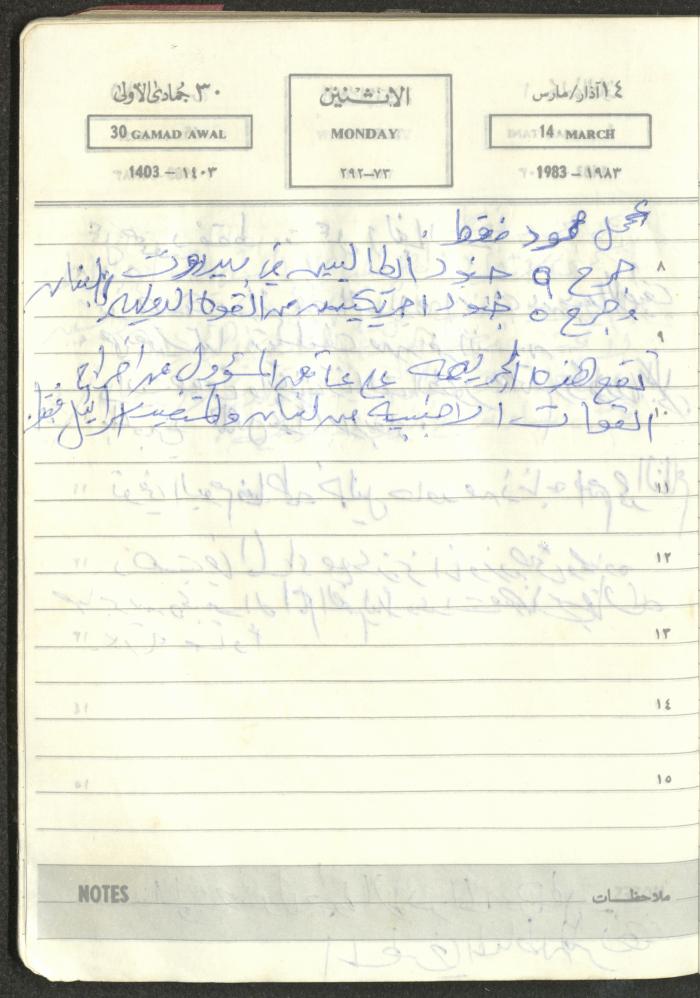 ٣٠ جمادى الأولى
30 GAMAD AWAL
1403 – ١٤٠٣
الاثنين
MONDAY
٧٣–٢٩٢
١٤ آذار/مارس
14 MARCH
1983 – ١٩٨٣
عمل محمود فقط
جرح 9 جنود ايطاليين في بيروت لبنان
وجرح ٥ جنود امريكيين من القوة الدولية.
تقع هذه الجريمة على عاتق المسؤول عن اخراج
القوات الاجنبية من لبنان اسرائيل فقط.
٨
٩
١٠
١١
١٢
١٣
١٤
١٥
NOTES
ملاحظات